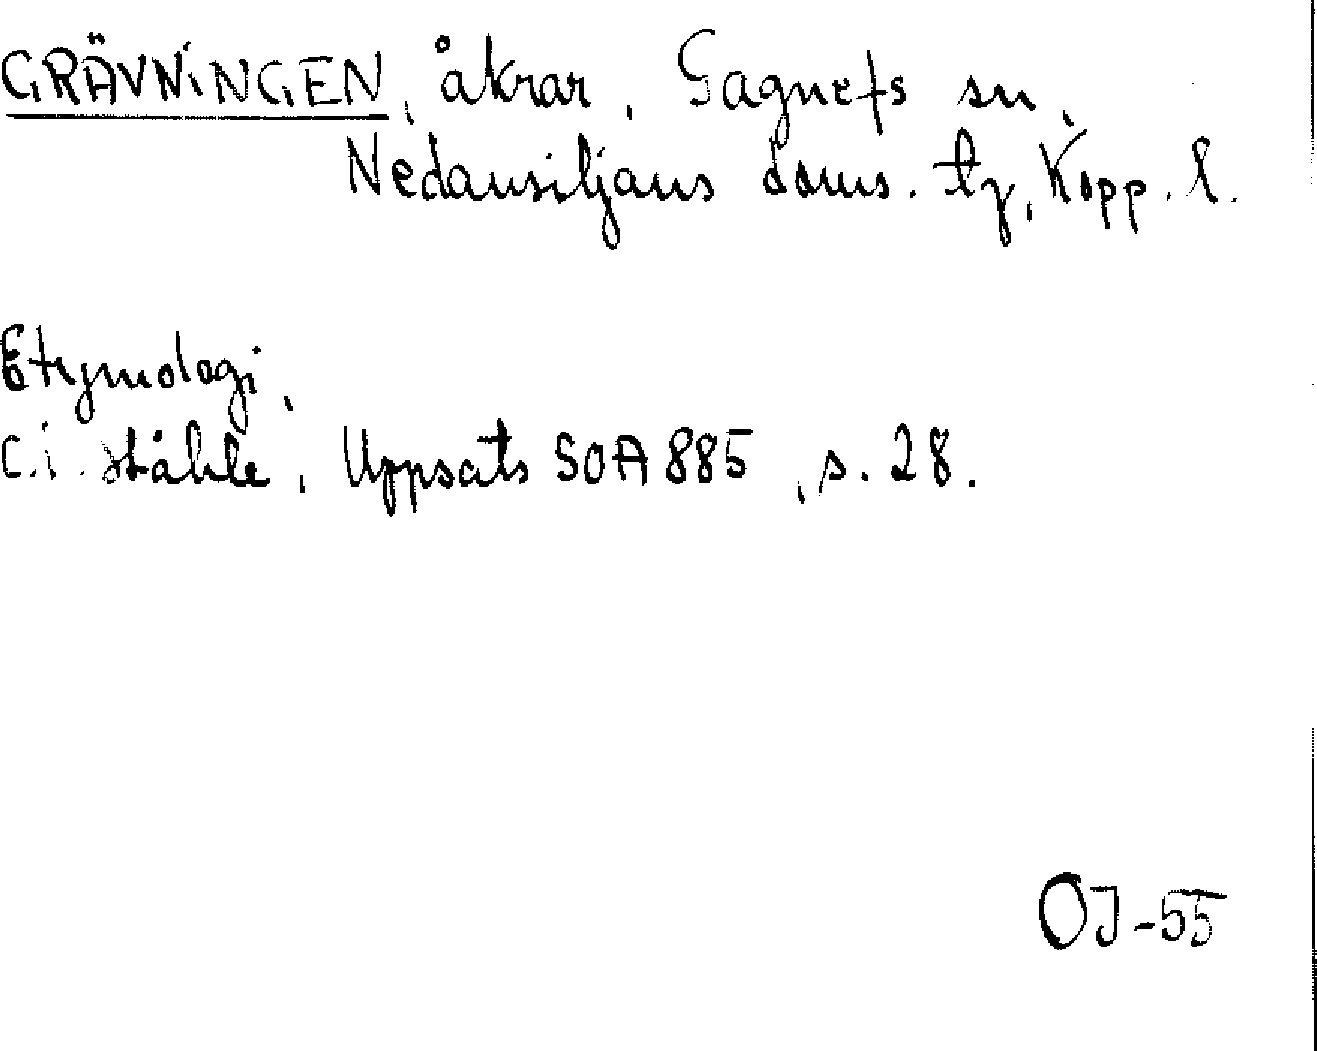 GRÄVNINGEN, åkrar, Gagnefs sn,
Nedansiljans doms. tg, Kopp. l.
Etymologi,
C.i. Ståhle, Uppsats SOA 885, s. 28.
OJ-55